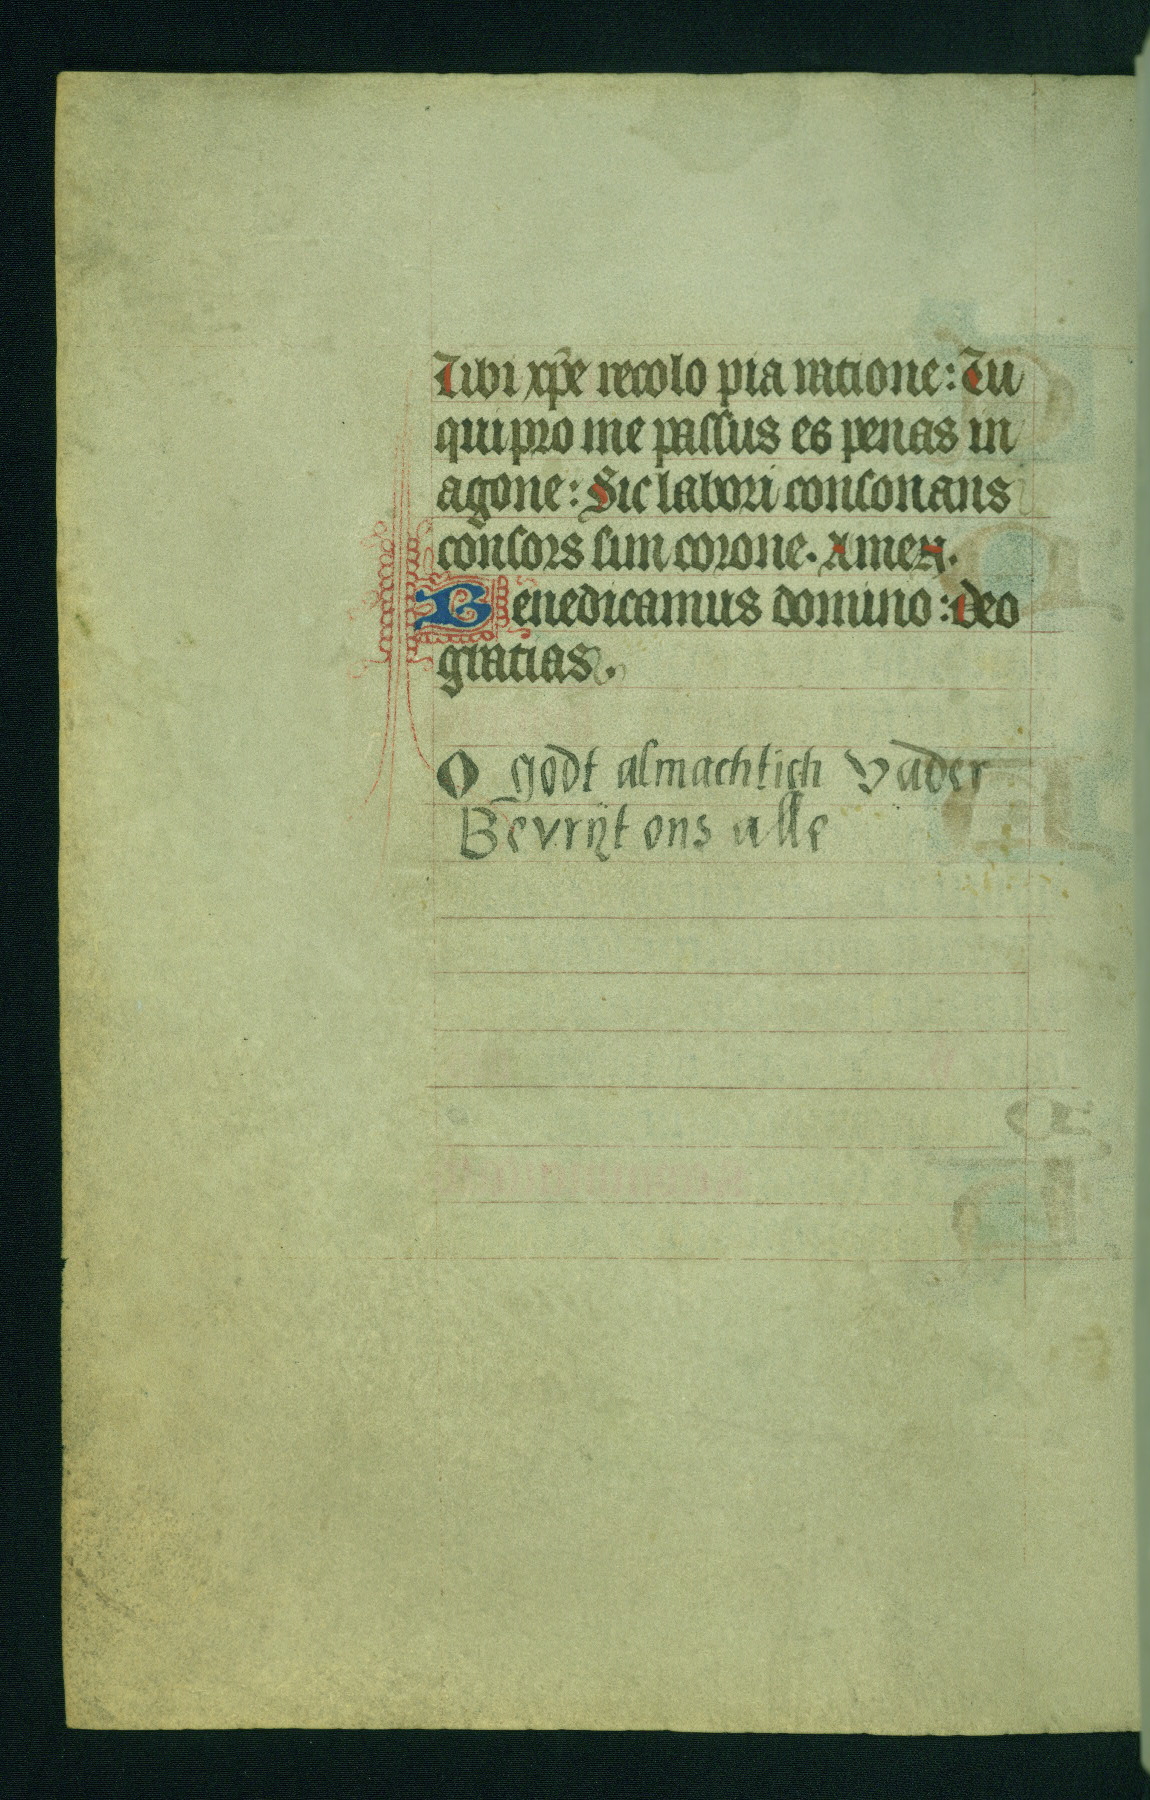 Tibi xp̄e recolo pia ratione: Tu
qui pro me passus es penas in
agone: Sic labori consonans
consors sim corone. Amen.
Benedicamus domino: deo
gratias.
O godt almachtich vader
Bevrijt ons alle